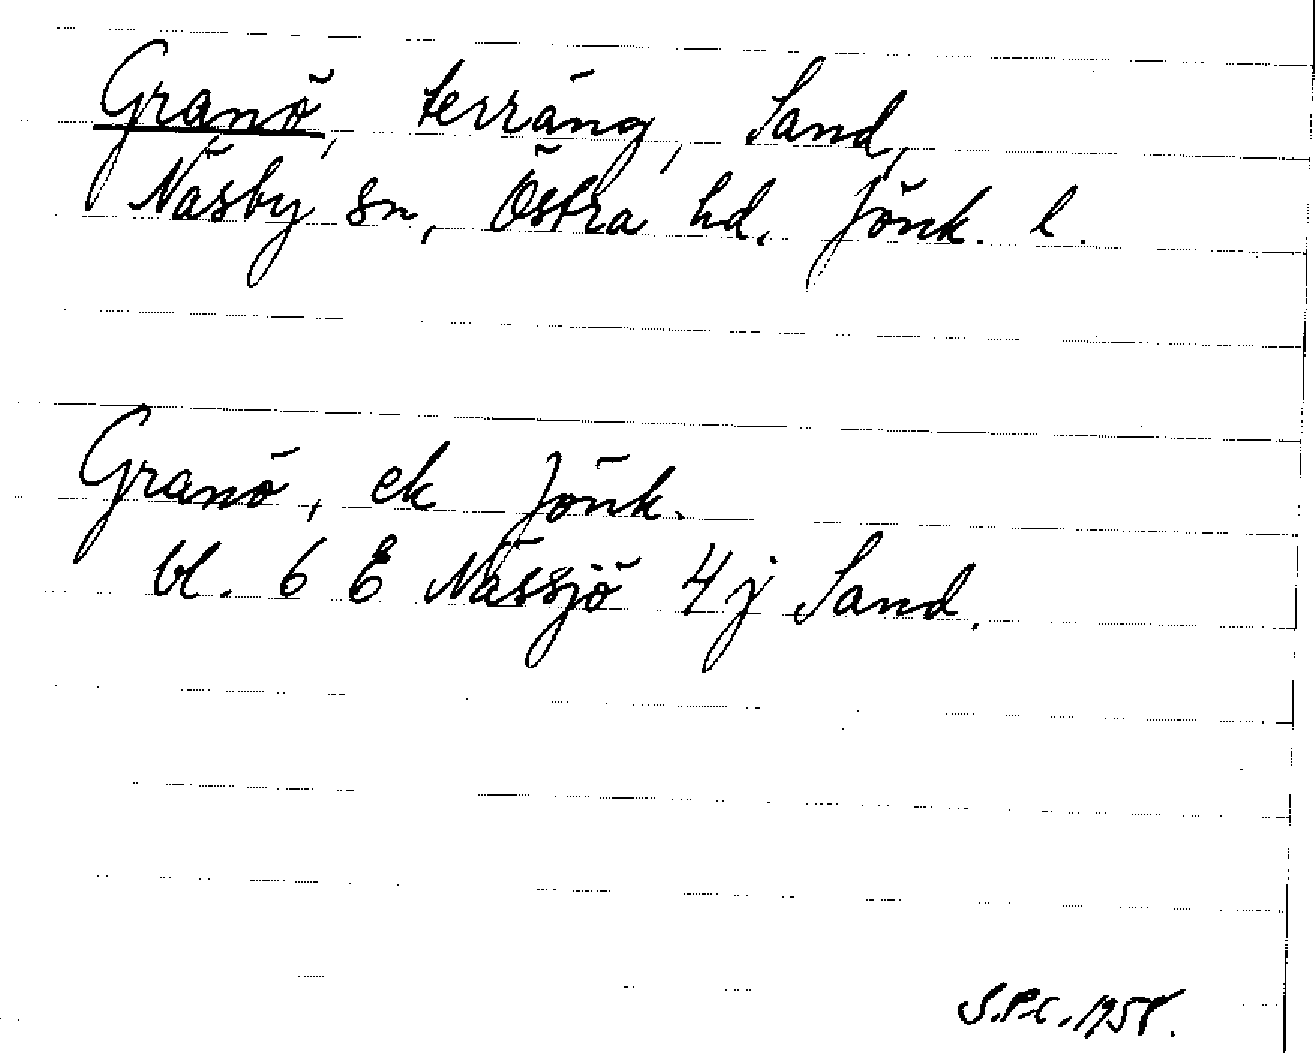 Granö, terräng, Sand,
Näsby sn, Östra hd. Jönk. l.
Granö, ek Jönk.
bl. 6 E Nässjö 4 j Sand.